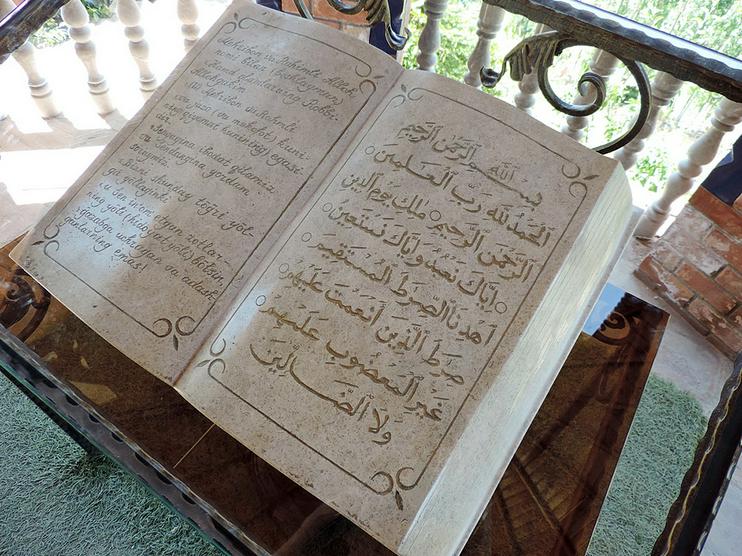 Mehribon va Rahmli Alloh
nomi bilan (boshlayman)
Hamd olamlarning Robbi -
Allohgakim
(U) Mehribon va Rahmli
(va) jazo (va mukofot) kuni-
ning (qiyomat kunining) egasi-
dir.
Sengagina ibodat qilamiz
va Sendangina yordam
so'raymiz
Bizni shunday to'g'ri yo'l-
ga yo'llaginki,
u Sen in'om etgan zotlar-
ning yo'li (hidoyat yo'li) bo'lsin,
g'azabga uchragan va adash-
ganlarning emas!
بِسْمِ ٱللَّهِ ٱلرَّحْمَٰنِ ٱلرَّحِيمِ
ٱلْحَمْدُ لِلَّهِ رَبِّ ٱلْعَٰلَمِينَ ○
ٱلرَّحْمَٰنِ ٱلرَّحِيمِ ○ مَٰلِكِ يَوْمِ ٱلدِّينِ
○ إِيَّاكَ نَعْبُدُ وَإِيَّاكَ نَسْتَعِينُ ○
ٱهْدِنَا ٱلصِّرَٰطَ ٱلْمُسْتَقِيمَ ○
صِرَٰطَ ٱلَّذِينَ أَنْعَمْتَ عَلَيْهِمْ ○
غَيْرِ ٱلْمَغْضُوبِ عَلَيْهِمْ ○
وَلَا ٱلضَّآلِّينَ